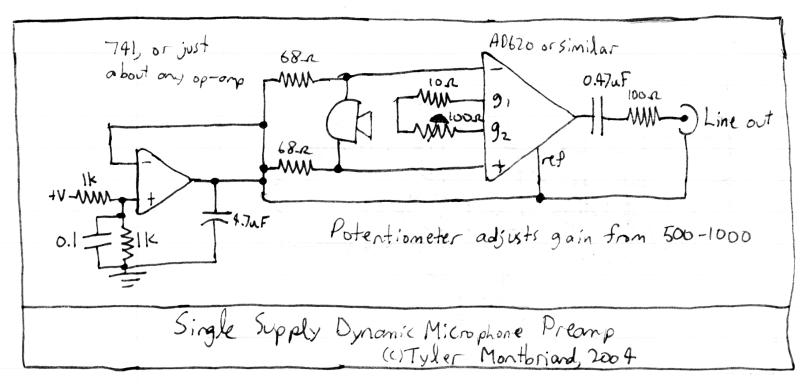 741, or just
about any op-amp
AD620 or similar
68Ω
10Ω
g1
100Ω
g2
0.47uF
100Ω
Line out
68Ω
ref
-
+
-
+
+V
1k
0.1
1k
4.7uF
Potentiometer adjusts gain from 500-1000
Single Supply Dynamic Microphone Preamp
(c) Tyler Montbriand, 2004